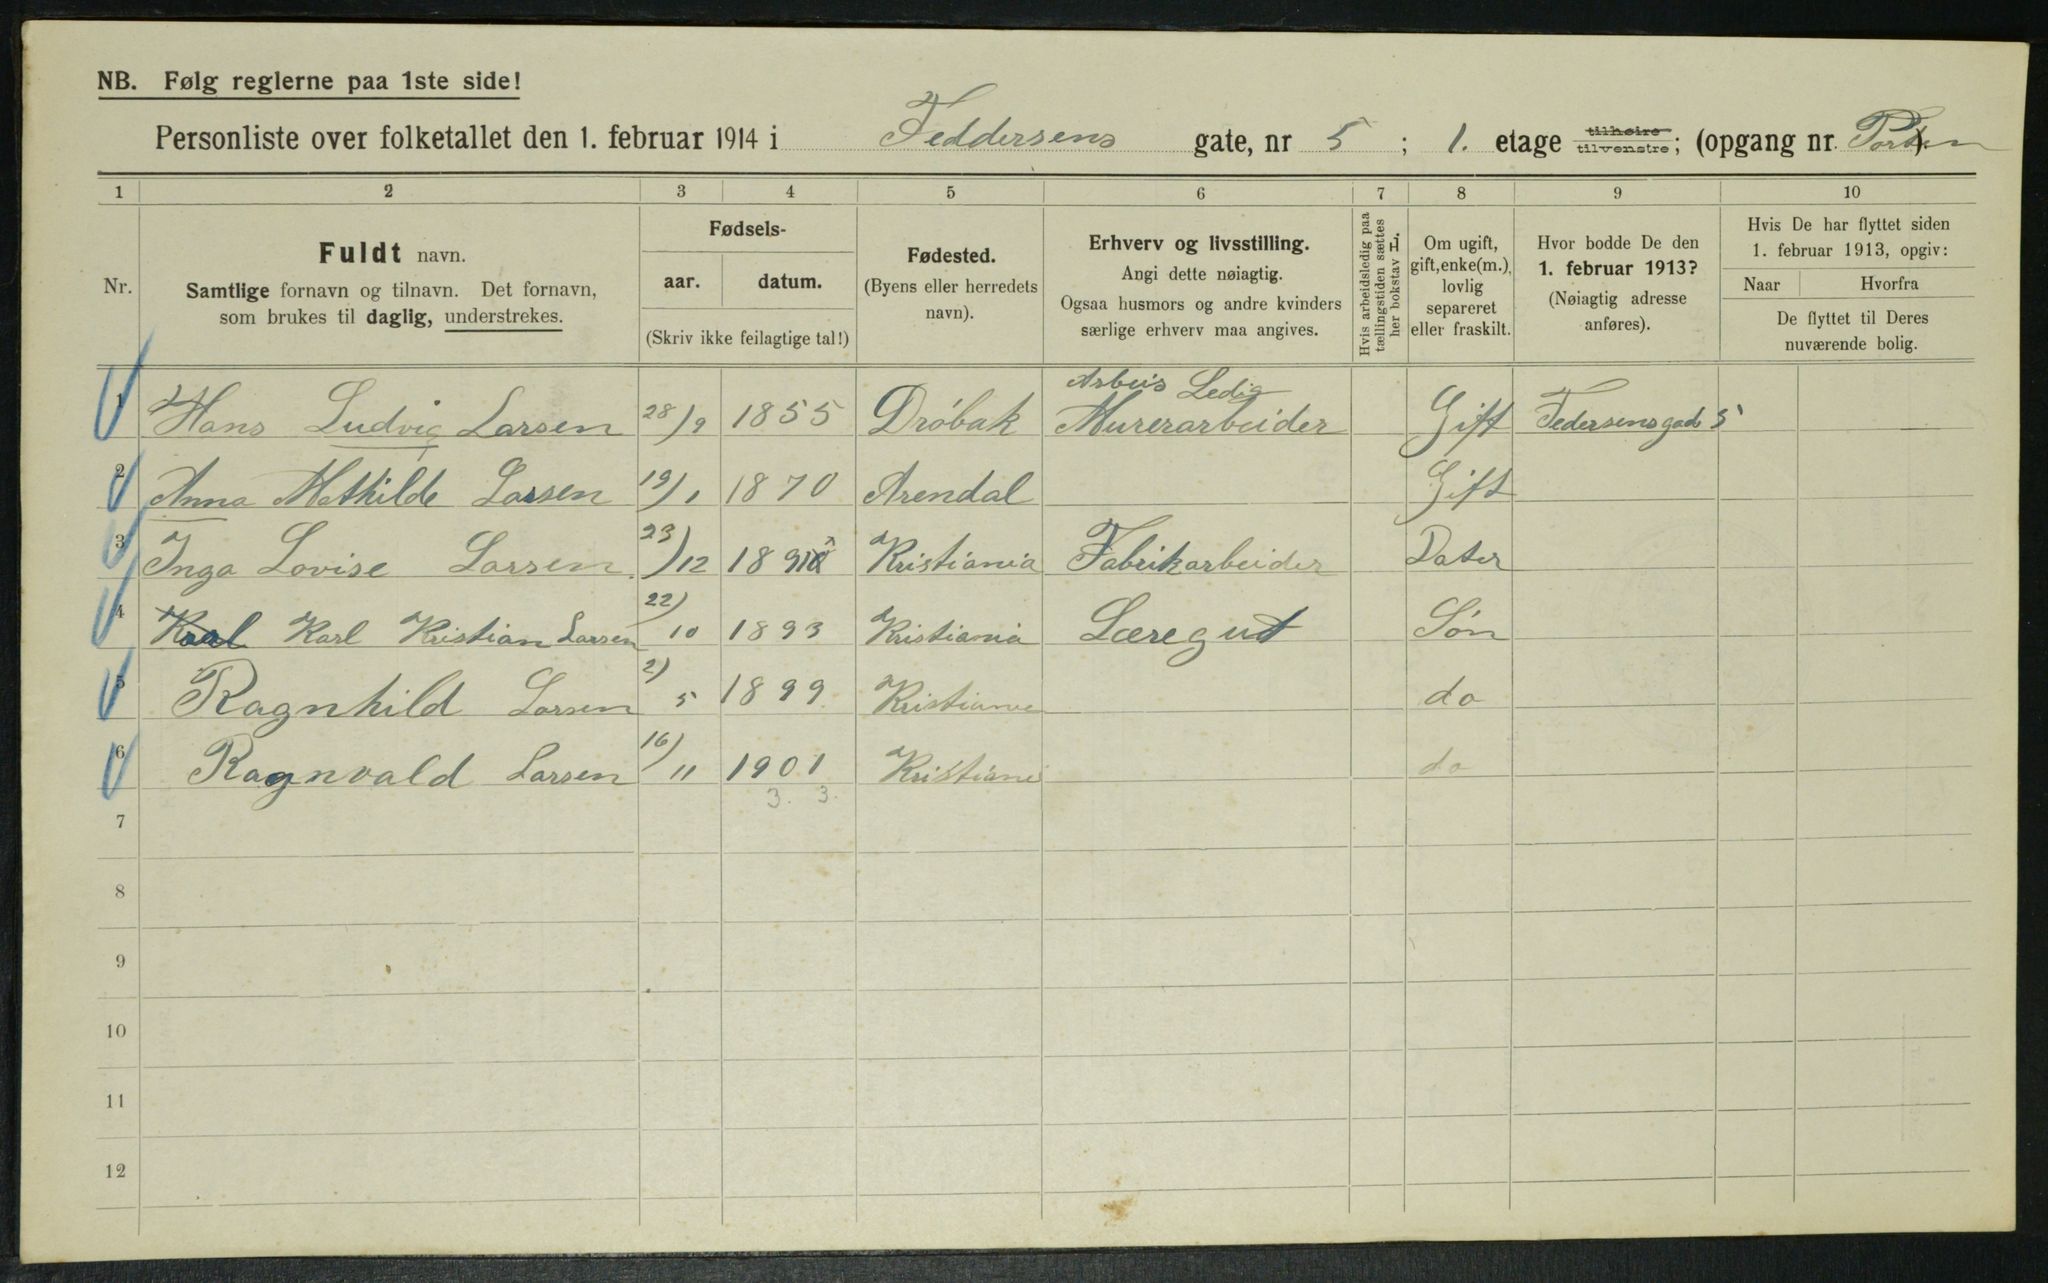 NB. Følg reglerne paa 1ste side!
Personliste over folketallet den 1. februar 1914 i Feddersens gate, nr 5 ; 1. etage tilhøire tilvenstre; (opgang nr. Porten ).
1 2 3 4 5 6 7 8 9 10
Nr.
Fuldt navn.
Samtlige fornavn og tilnavn. Det fornavn,
som brukes til daglig, understrekes.
Fødsels-
aar. datum.
(Skriv ikke feilagtige tal!)
Fødested.
(Byens eller herredets
navn).
Erhverv og livsstilling.
Angi dette nøiagtig.
Ogsaa husmors og andre kvinders
særlige erhverv maa angives.
Hvis arbeidsledig paa
tællingstiden sættes
her bokstav L.
Om ugift,
gift, enke(m.),
lovlig
separeret
eller fraskilt.
Hvor bodde De den
1. februar 1913?
(Nøiagtig adresse
anføres).
Hvis De har flyttet siden
1. februar 1913, opgiv:
Naar Hvorfra
De flyttet til Deres
nuværende bolig.
Arbeis Ledig
1 Hans Ludvig Larsen 28/9 1855 Dröbak Murerarbeider Gift Federsensgad 5
2 Anna Mathilde Larsen 19/1 1870 Arendal Gift
3 Inga Lovise Larsen 23/12 1891 Kristiania Fabrikarbeider Dater
4 Karl Karl Kristian Larsen 22/10 1893 Kristiania Læregut Søn
5 Ragnhild Larsen 2/5 1899 Kristiania do
6 Ragnvald Larsen 16/11 1901 Kristiania do
3. 3.
7
8
9
10
11
12